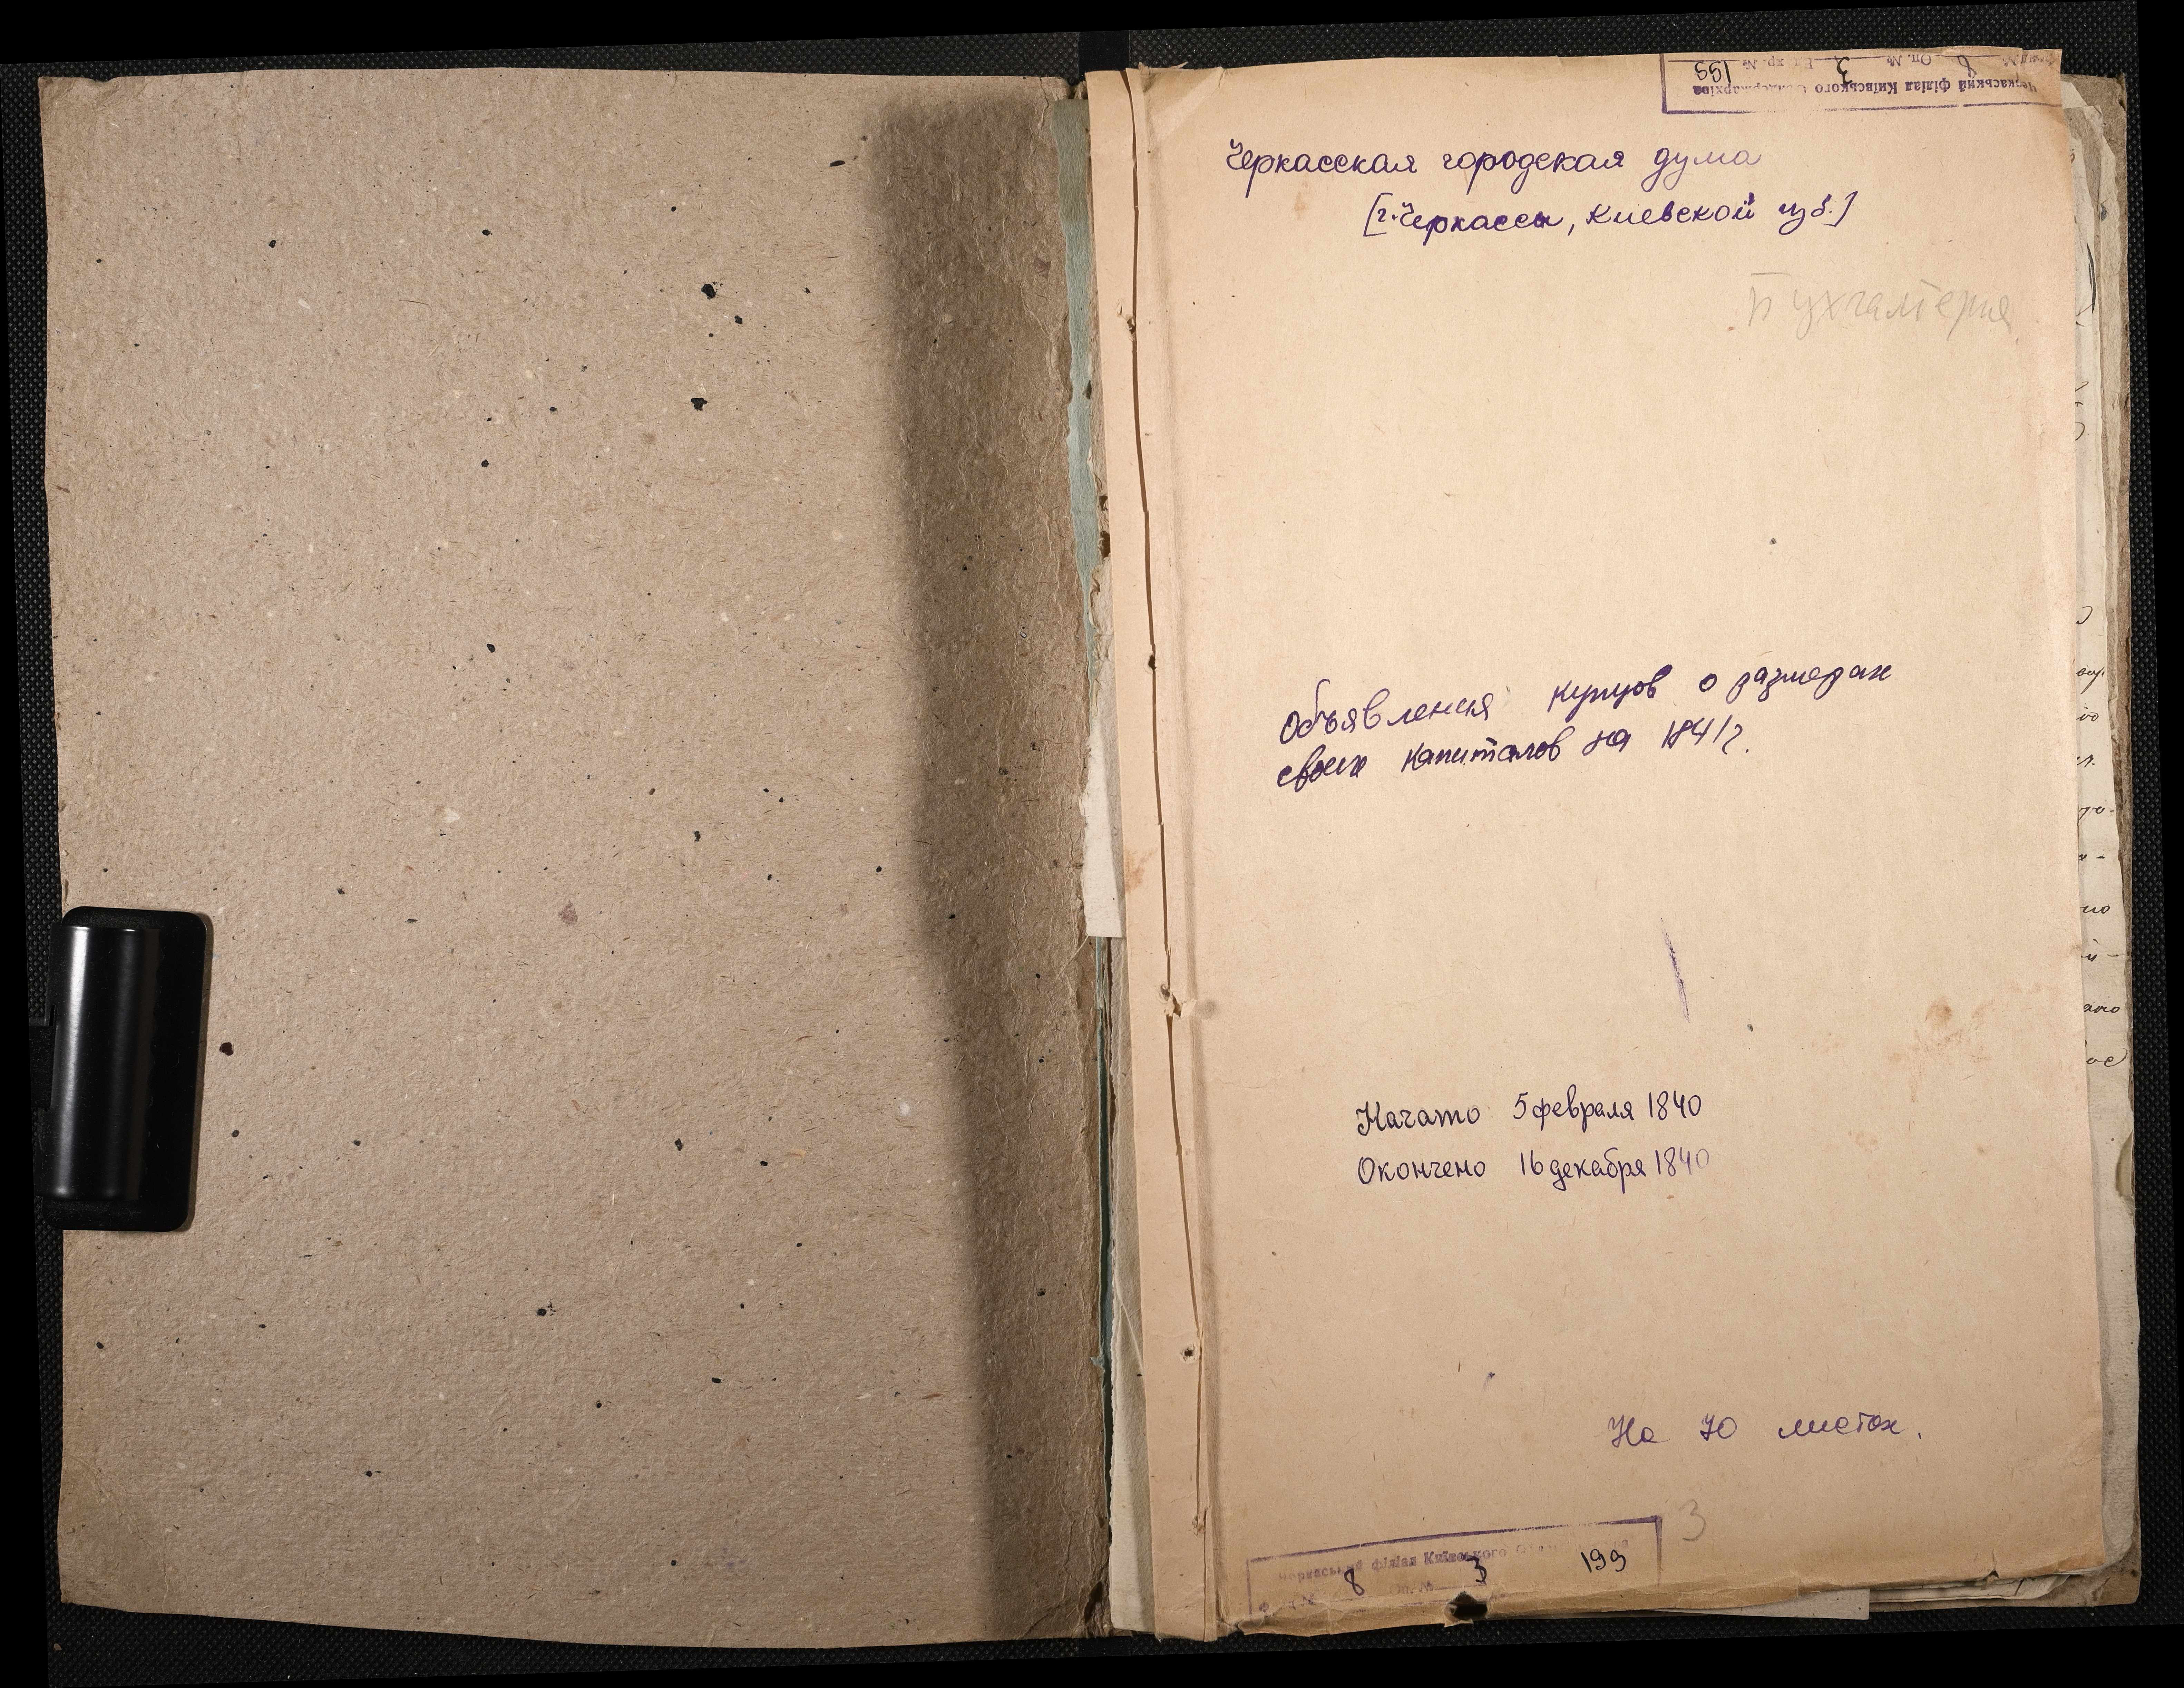 Черкаський філіал Київського Облдержархіва
8 Оп. № 3 Ед. хр. № 199
Черкасская городская дума
[г. Черкассы, Киевской губ.]
Бухгалтерия
Объявления купцов о размерах
своих капиталов на 1841 г.
Начато 5 февраля 1840
Окончено 16 декабря 1840
На 70 листах.
3
Черкаський філіал Київського
8 Оп. № 3 199